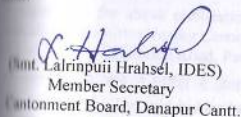 (Smt. Lalrinpuii Hrahsel, IDES)
Member Secretary
Cantonment Board, Danapur Cantt.